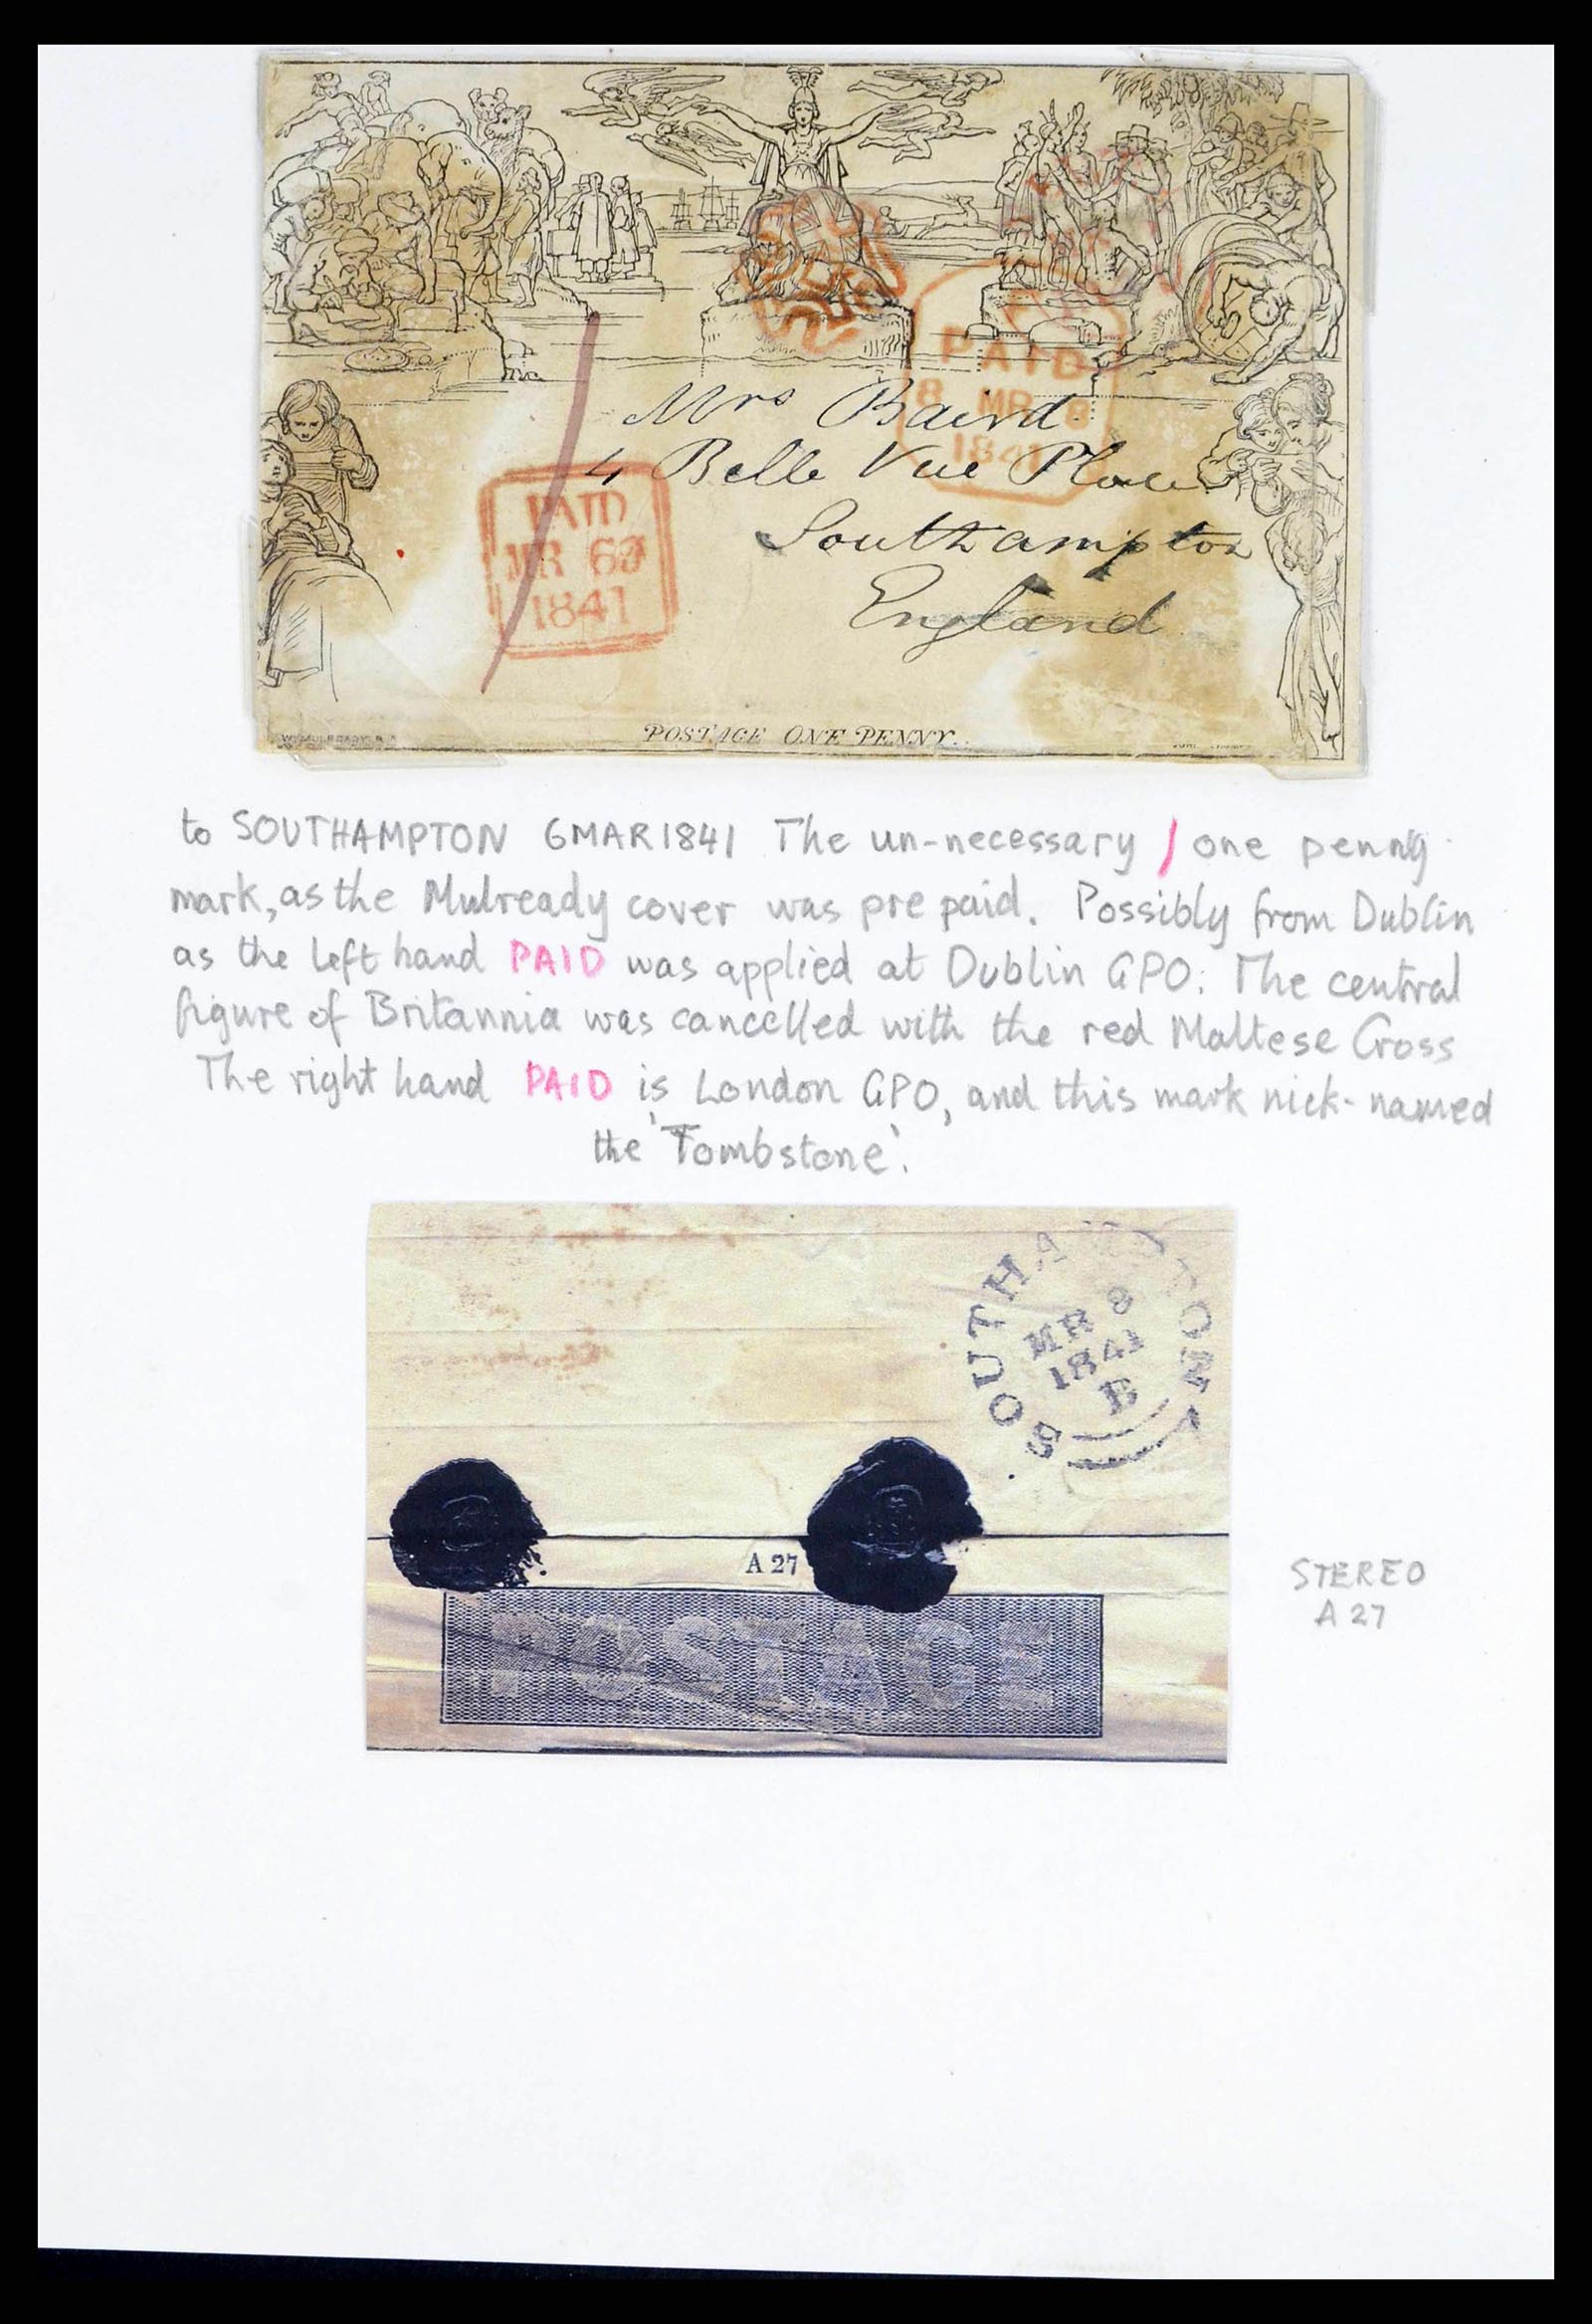 PAID
8 MR 8
1841
Mrs Baird
4 Belle Vue Place
Southampton
England
PAID
MR 6
1841
POSTAGE ONE PENNY.
W. MULREADY. R.A.
to SOUTHAMPTON 6MAR1841 The un-necessary / one penny
mark, as the Mulready cover was pre paid. Possibly from Dublin
as the left hand PAID was applied at Dublin GPO. The central
figure of Britannia was cancelled with the red Maltese Cross
The right hand PAID is London GPO, and this mark nick-named
the 'Tombstone'.
SOUTHAMPTON
MR 8
1841
B
A 27
POSTAGE
STEREO
A 27